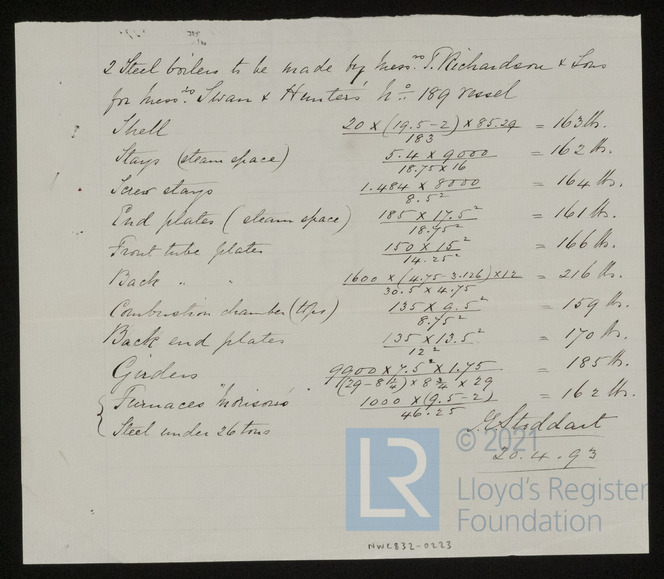 2 Steel boilers to be made by Messrs T. Richardson & Sons
for Messrs Swan & Hunters' No 189 vessel
Shell 20 x (19.5-2) x 85.29 / 183 = 163 lbs.
Stays (steam space) 5.4 x 9000 / 18.75 x 16 = 162 lbs.
Screw stays 1.484 x 8000 / 8.5² = 164 lbs.
End plates (steam space) 185 x 17.5² / 18.75² = 161 lbs.
Front tube plates 150 x 15² / 14.25² = 166 lbs.
Back " " 1600 x (4.75-3.126) x 12 / 30.5 x 4.75 = 216 lbs.
Combustion chamber (tops) 135 x 9.5² / 8.75² = 159 lbs.
Back end plates 135 x 13.5² / 12² = 170 lbs.
Girders 9900 x 7.5² x 1.75 / (29-8¾) x 8¾ x 29 = 185 lbs.
Furnaces "Morison's" 1000 x (9.5-2) / 46.25 = 162 lbs.
Steel under 26 tons
J. E. Stoddart
20.4.93
© 2021
LR
Lloyd's Register
Foundation
NWC832-0223